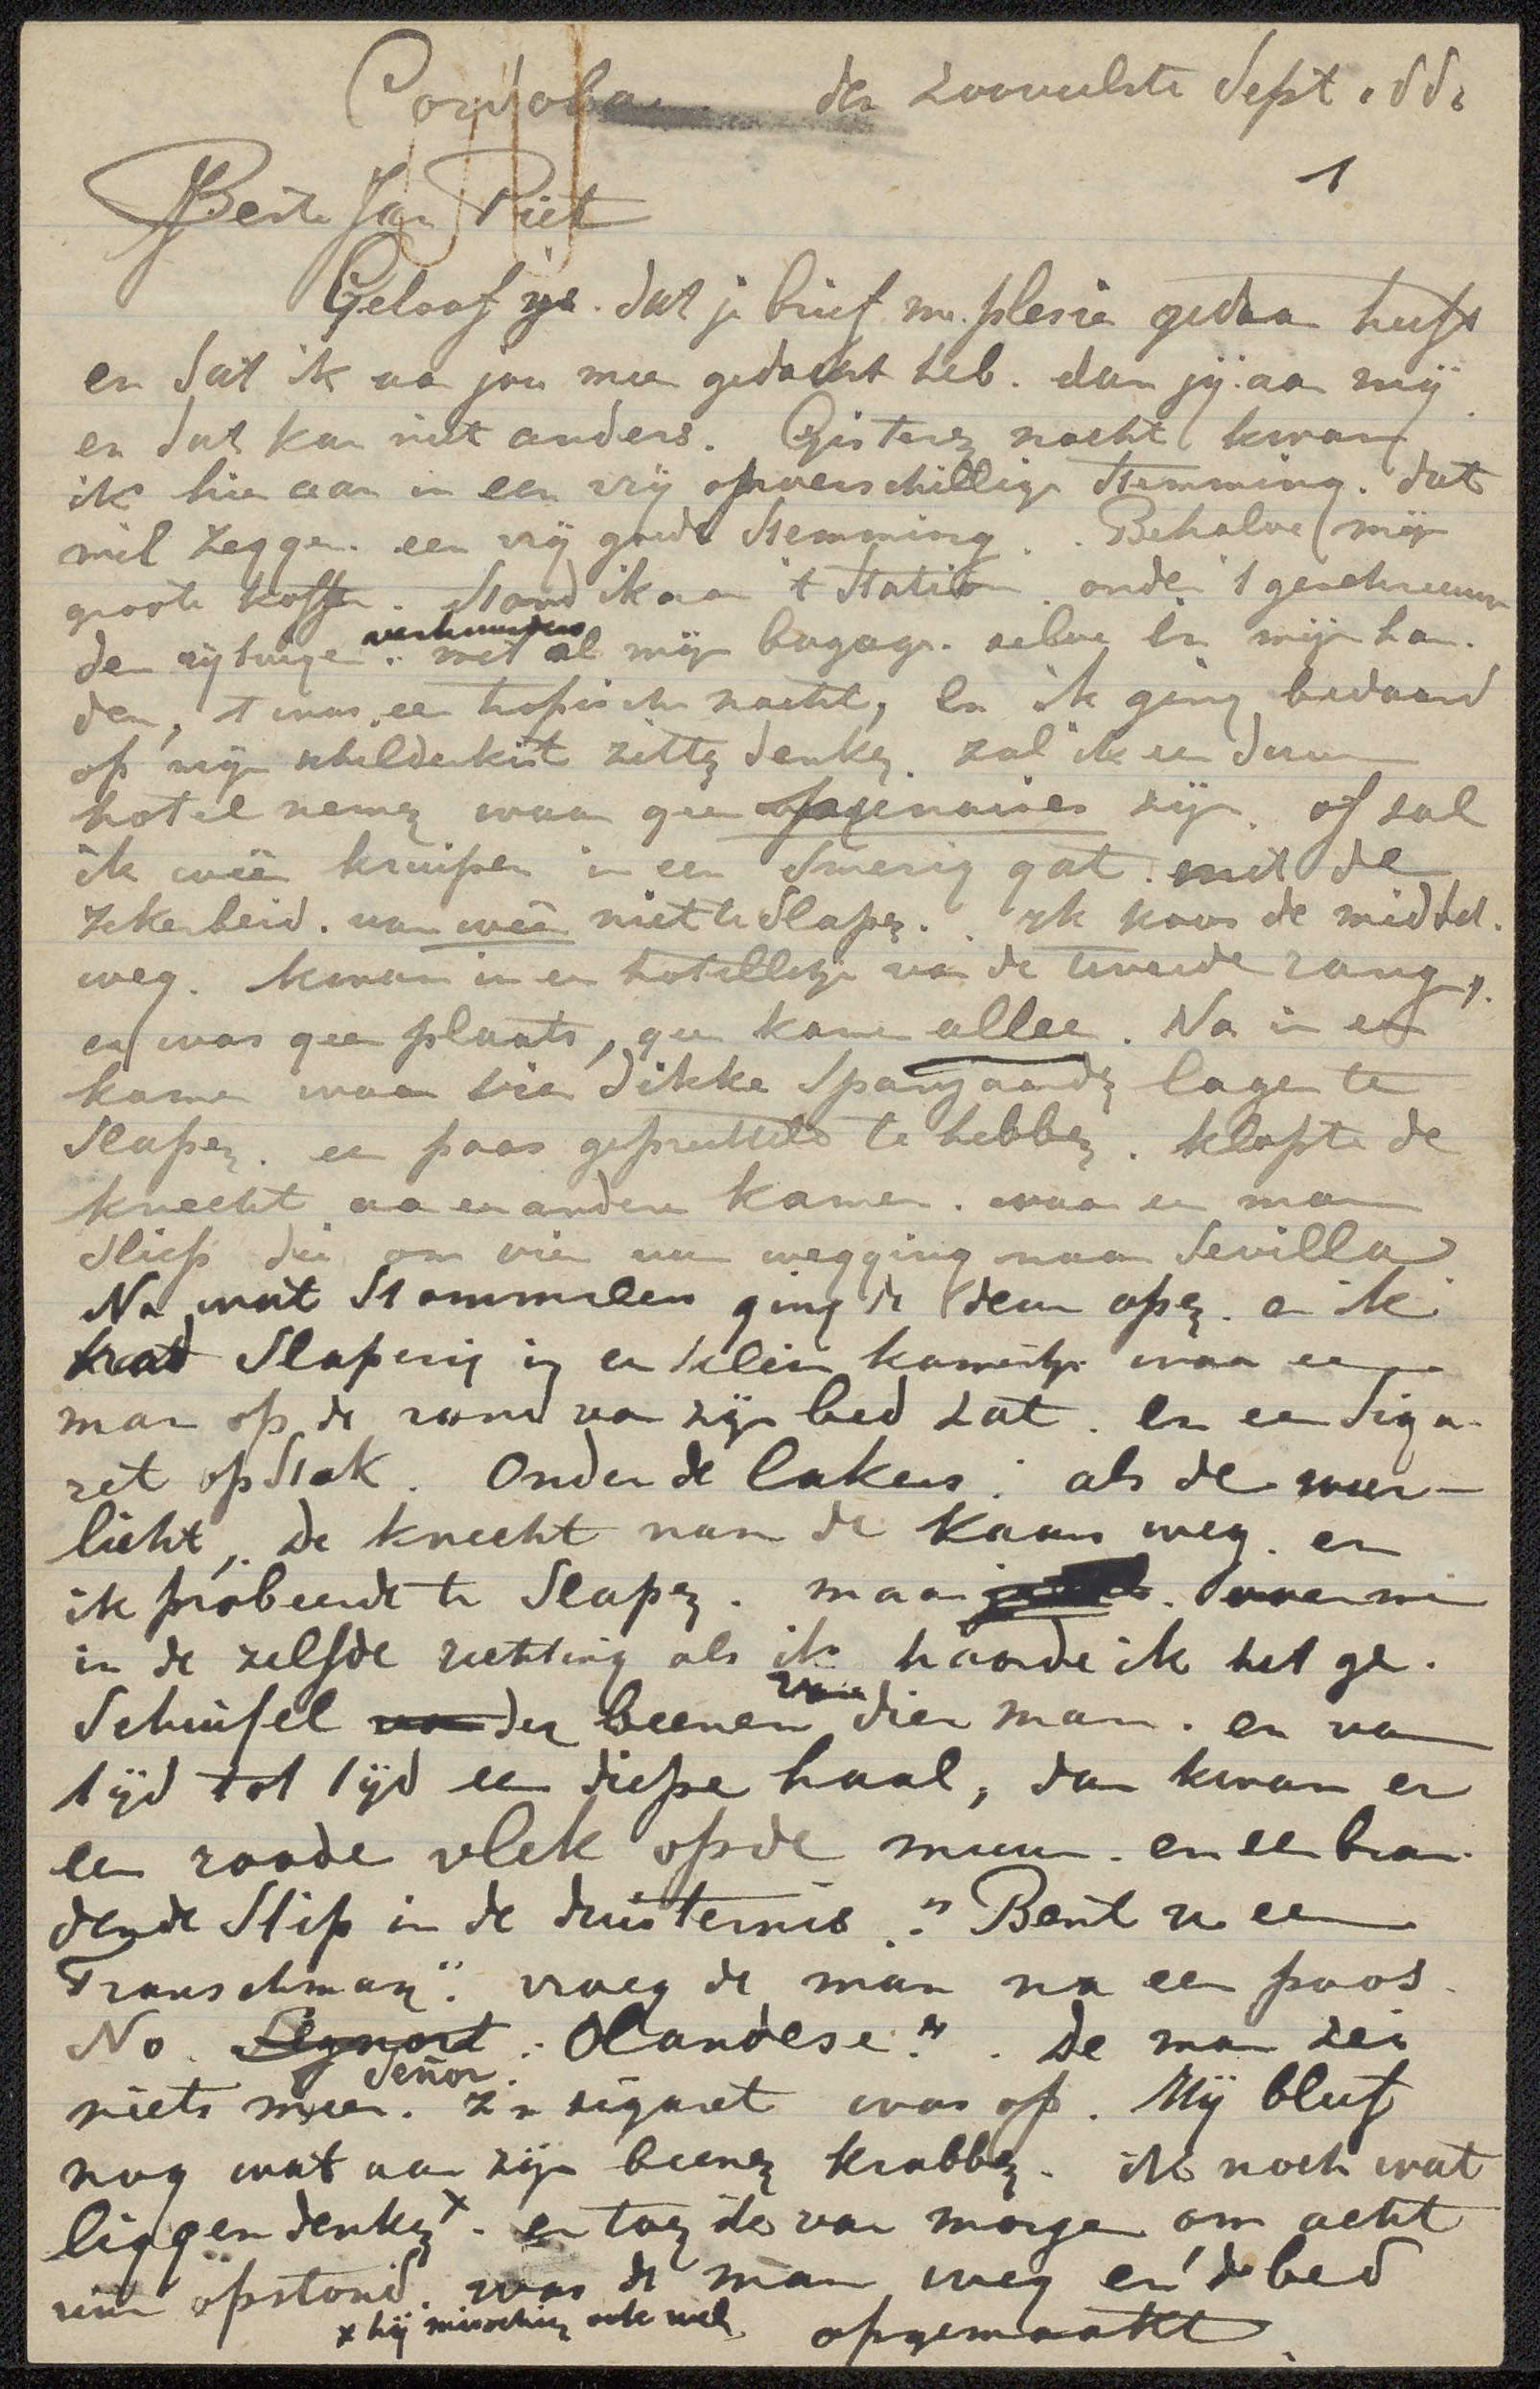 Cordoba den zooveelste Sept. 88.
1
Beste Jan Piet
Geloof me. dat je brief me. plesier gedaan heeft
en dat ik aan jou meer gedacht heb. dan jij. aan mij
en dat kan niet anders. Gisteren nacht kwam
ik hier aan in een vrij onverschillige stemming. dat
wil zeggen. een vrij goede stemming. Behalve mijn
groote koffer. stond ik aan 't station. onder 't geschreeuw
der rijtuigen verhuurders met al mijn bagage. zelve in mijn han-
den, 't was een tropische nacht, en ik ging bedaard
op mijn schilderkist zitten denken. zal ik een duur
hotel nemen waar geen zijn. of zal
ik weer kruipen in een smerig gat. met de
zekerheid. van weer niet te slapen. Ik koos de middel-
weg. kwam in een hotelletje van de tweede rang,
er was geen plaats, geen kamer alleen. Na in een
kamer waar drie dikke Spanjaarden lagen te
slapen. een poos geprutteld te hebben. klopte de
knecht aan een andere kamer. waar een man
sliep die om vier uur wegging naar Sevilla
Na wat stommelen ging de deur open. en ik
trad slaperig in een klein kamertje waar een
man op de rand van zijn bed zat. en een siga-
ret opstak. Onder de lakens. als de weer-
licht, de knecht nam de kaars weg. en
ik probeerde te slapen. maar voor mij
in de zelfde richting als ik hoorde ik het ge-
schuifel der beenen van dien man. en van
tijd tot tijd een diepe haal, dan kwam er
een roode vlek op de muur. en een bran-
dende stip in de duisternis. "Bent u een
Franschman". vroeg de man na een poos.
No. Segnort Señor. Olandese". De man zei
niets meer. z'n sigaret was op. Hij bleef
nog wat aan zijn beenen krabben. ik noch wat
liggen denken x. en toen ik van morgen om acht
uur opstond. was de man weg en 't bed
opgemaakt.
x hij misschien ook wel